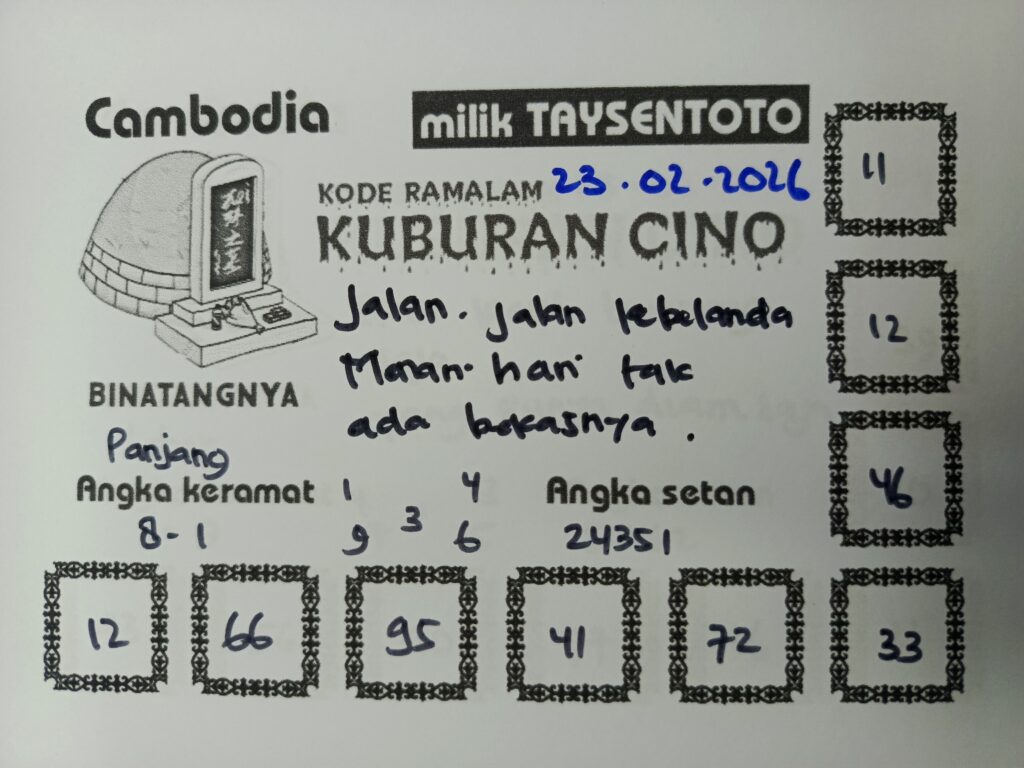 Cambodia
milik TAYSENTOTO
KODE RAMALAM 23.02.2026
KUBURAN CINO
Jalan. jalan kebelanda
hari tak
ada bekasnya.
BINATANGNYA
Panjang
Angka keramat
8-1
1 4
3
9 6
Angka setan
24351
11
12
46
12 66 95 41 72 33